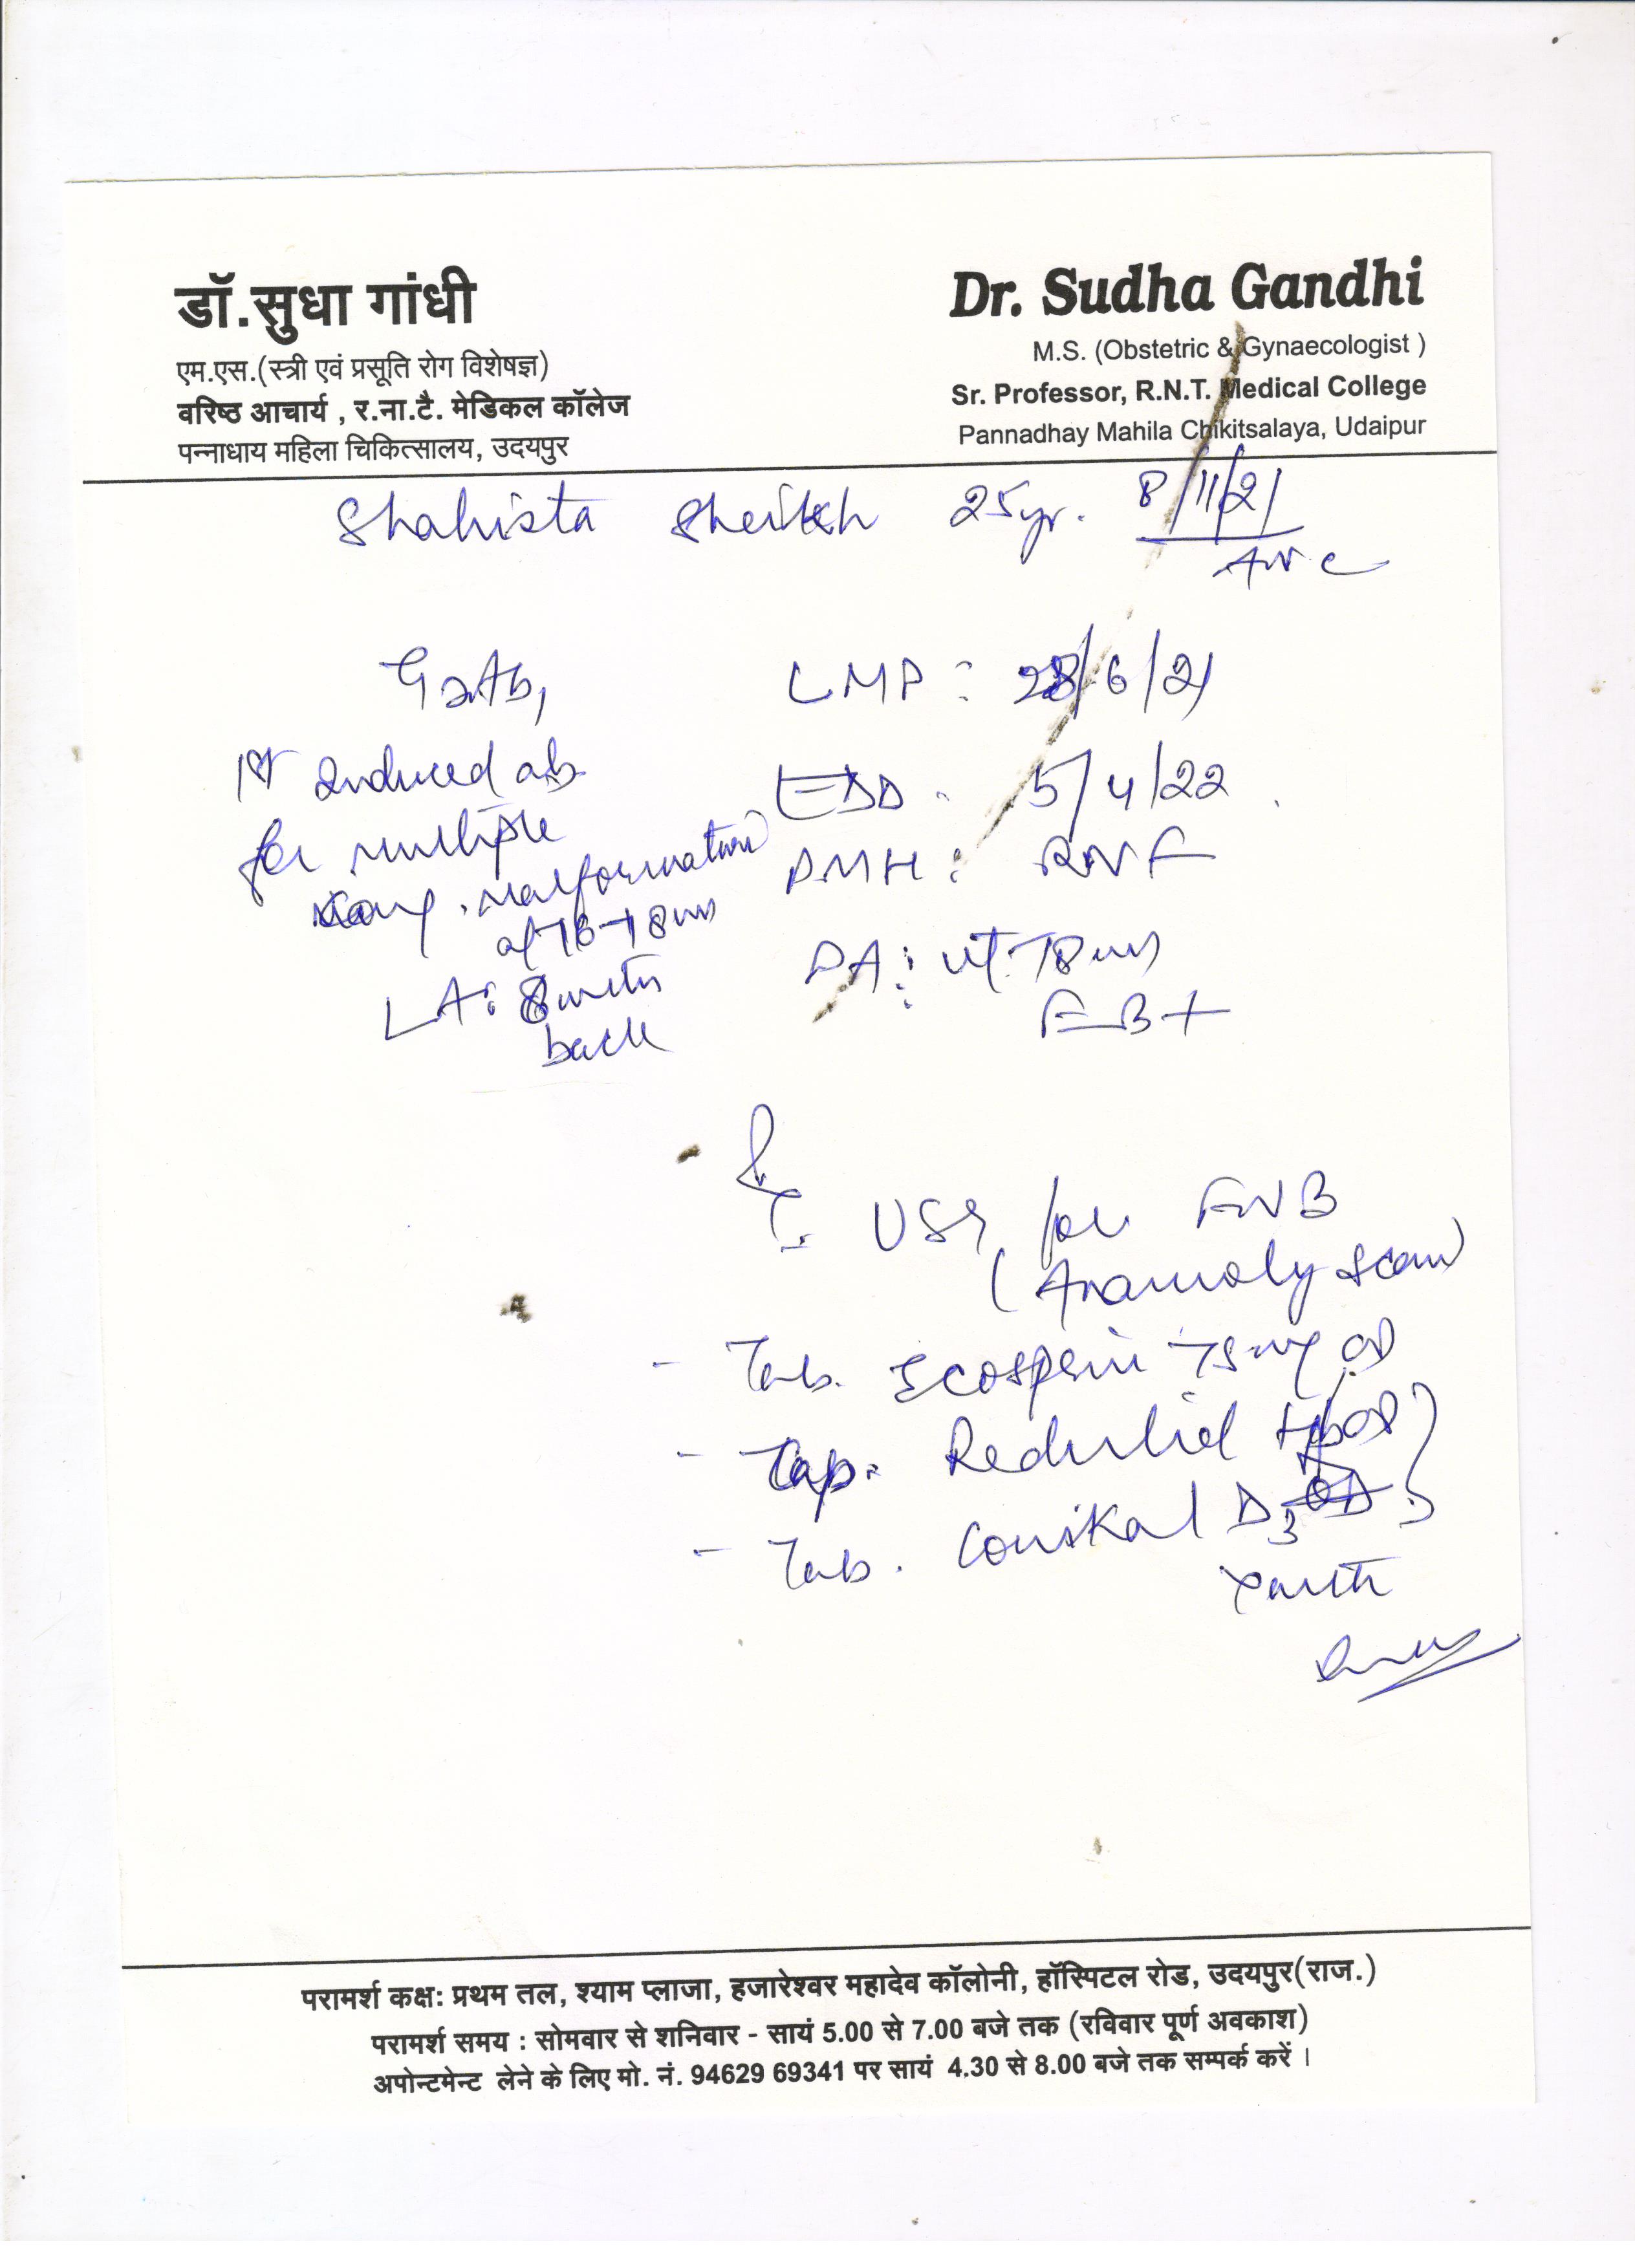 डॉ.सुधा गांधी
एम.एस.(स्त्री एवं प्रसूति रोग विशेषज्ञ)
वरिष्ठ आचार्य , र.ना.टै. मेडिकल कॉलेज
पन्नाधाय महिला चिकित्सालय, उदयपुर
Dr. Sudha Gandhi
M.S. (Obstetric & Gynaecologist )
Sr. Professor, R.N.T. Medical College
Pannadhay Mahila Chikitsalaya, Udaipur
Shahista Sheikh 25yr. 8/11/21
ANC
G2Ab1
1st induced ab
for multiple
cong. malformation
LA: 8 mth
back
LMP : 28/6/21
EDD : 5/4/22
PMH : RNF
PA : ut. 18 wks
FB+
USG for FWB
(Anamoly scan)
- Tab. Ecosprin 75 mg OD
- Cap. OD
- Tab. D3
x mth
परामर्श कक्ष: प्रथम तल, श्याम प्लाजा, हजारेश्वर महादेव कॉलोनी, हॉस्पिटल रोड, उदयपुर(राज.)
परामर्श समय : सोमवार से शनिवार - सायं 5.00 से 7.00 बजे तक (रविवार पूर्ण अवकाश)
अपोन्टमेन्ट लेने के लिए मो. नं. 94629 69341 पर सायं 4.30 से 8.00 बजे तक सम्पर्क करें ।